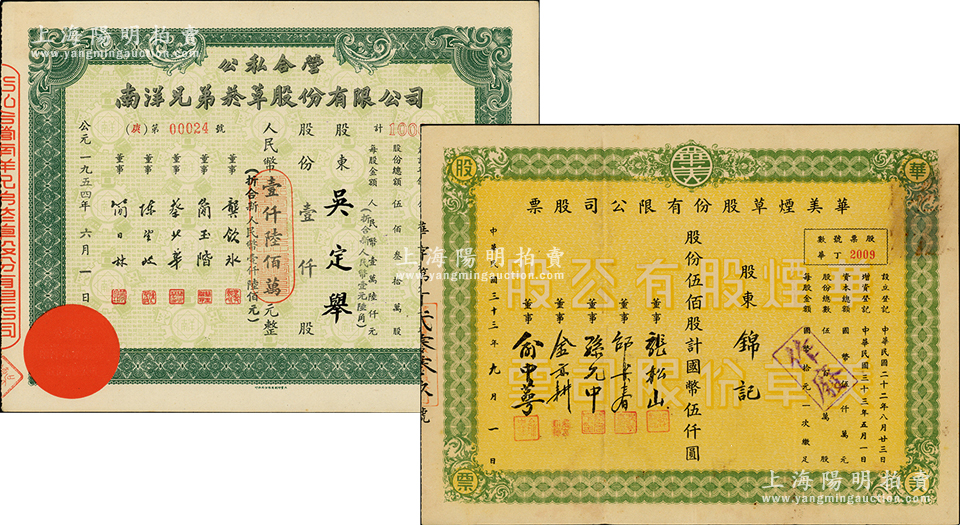 上海陽明拍賣
www.yangmingauction.com
公私合營
南洋兄弟菸草股份有限公司
第 00024 號
計 100
股份總額伍佰叁拾萬股
每股金額人民幣壹萬陸仟元
(折合新人民幣壹元陸角)
股東 吳定舉
股份 壹仟 股
人民幣壹仟陸佰萬元整
(折合新人民幣壹仟陸佰元)
董事 龔飲冰
董事 簡玉階
董事
董事
董事 簡日林
公元一九五四年六月一日
華美煙草股份有限公司股票
股
華
票
美
股票號數
華丁 2009
設立登記 中華民國二十二年八月廿三日
增資登記 中華民國三十三年五月一日
資本總額 國幣伍仟萬元
股份總數 伍萬股
每股金額 國幣拾元一次繳足
作廢
股東 錦記
股份伍佰股計國幣伍仟圓
董事 張松山
董事
董事 孫元中
董事
董事 俞中萼
中華民國三十三年九月一日
股公有股煙
票司限份草
上海陽明拍賣
www.yangmingauction.com
上海陽明拍賣
www.yangmingauction.com